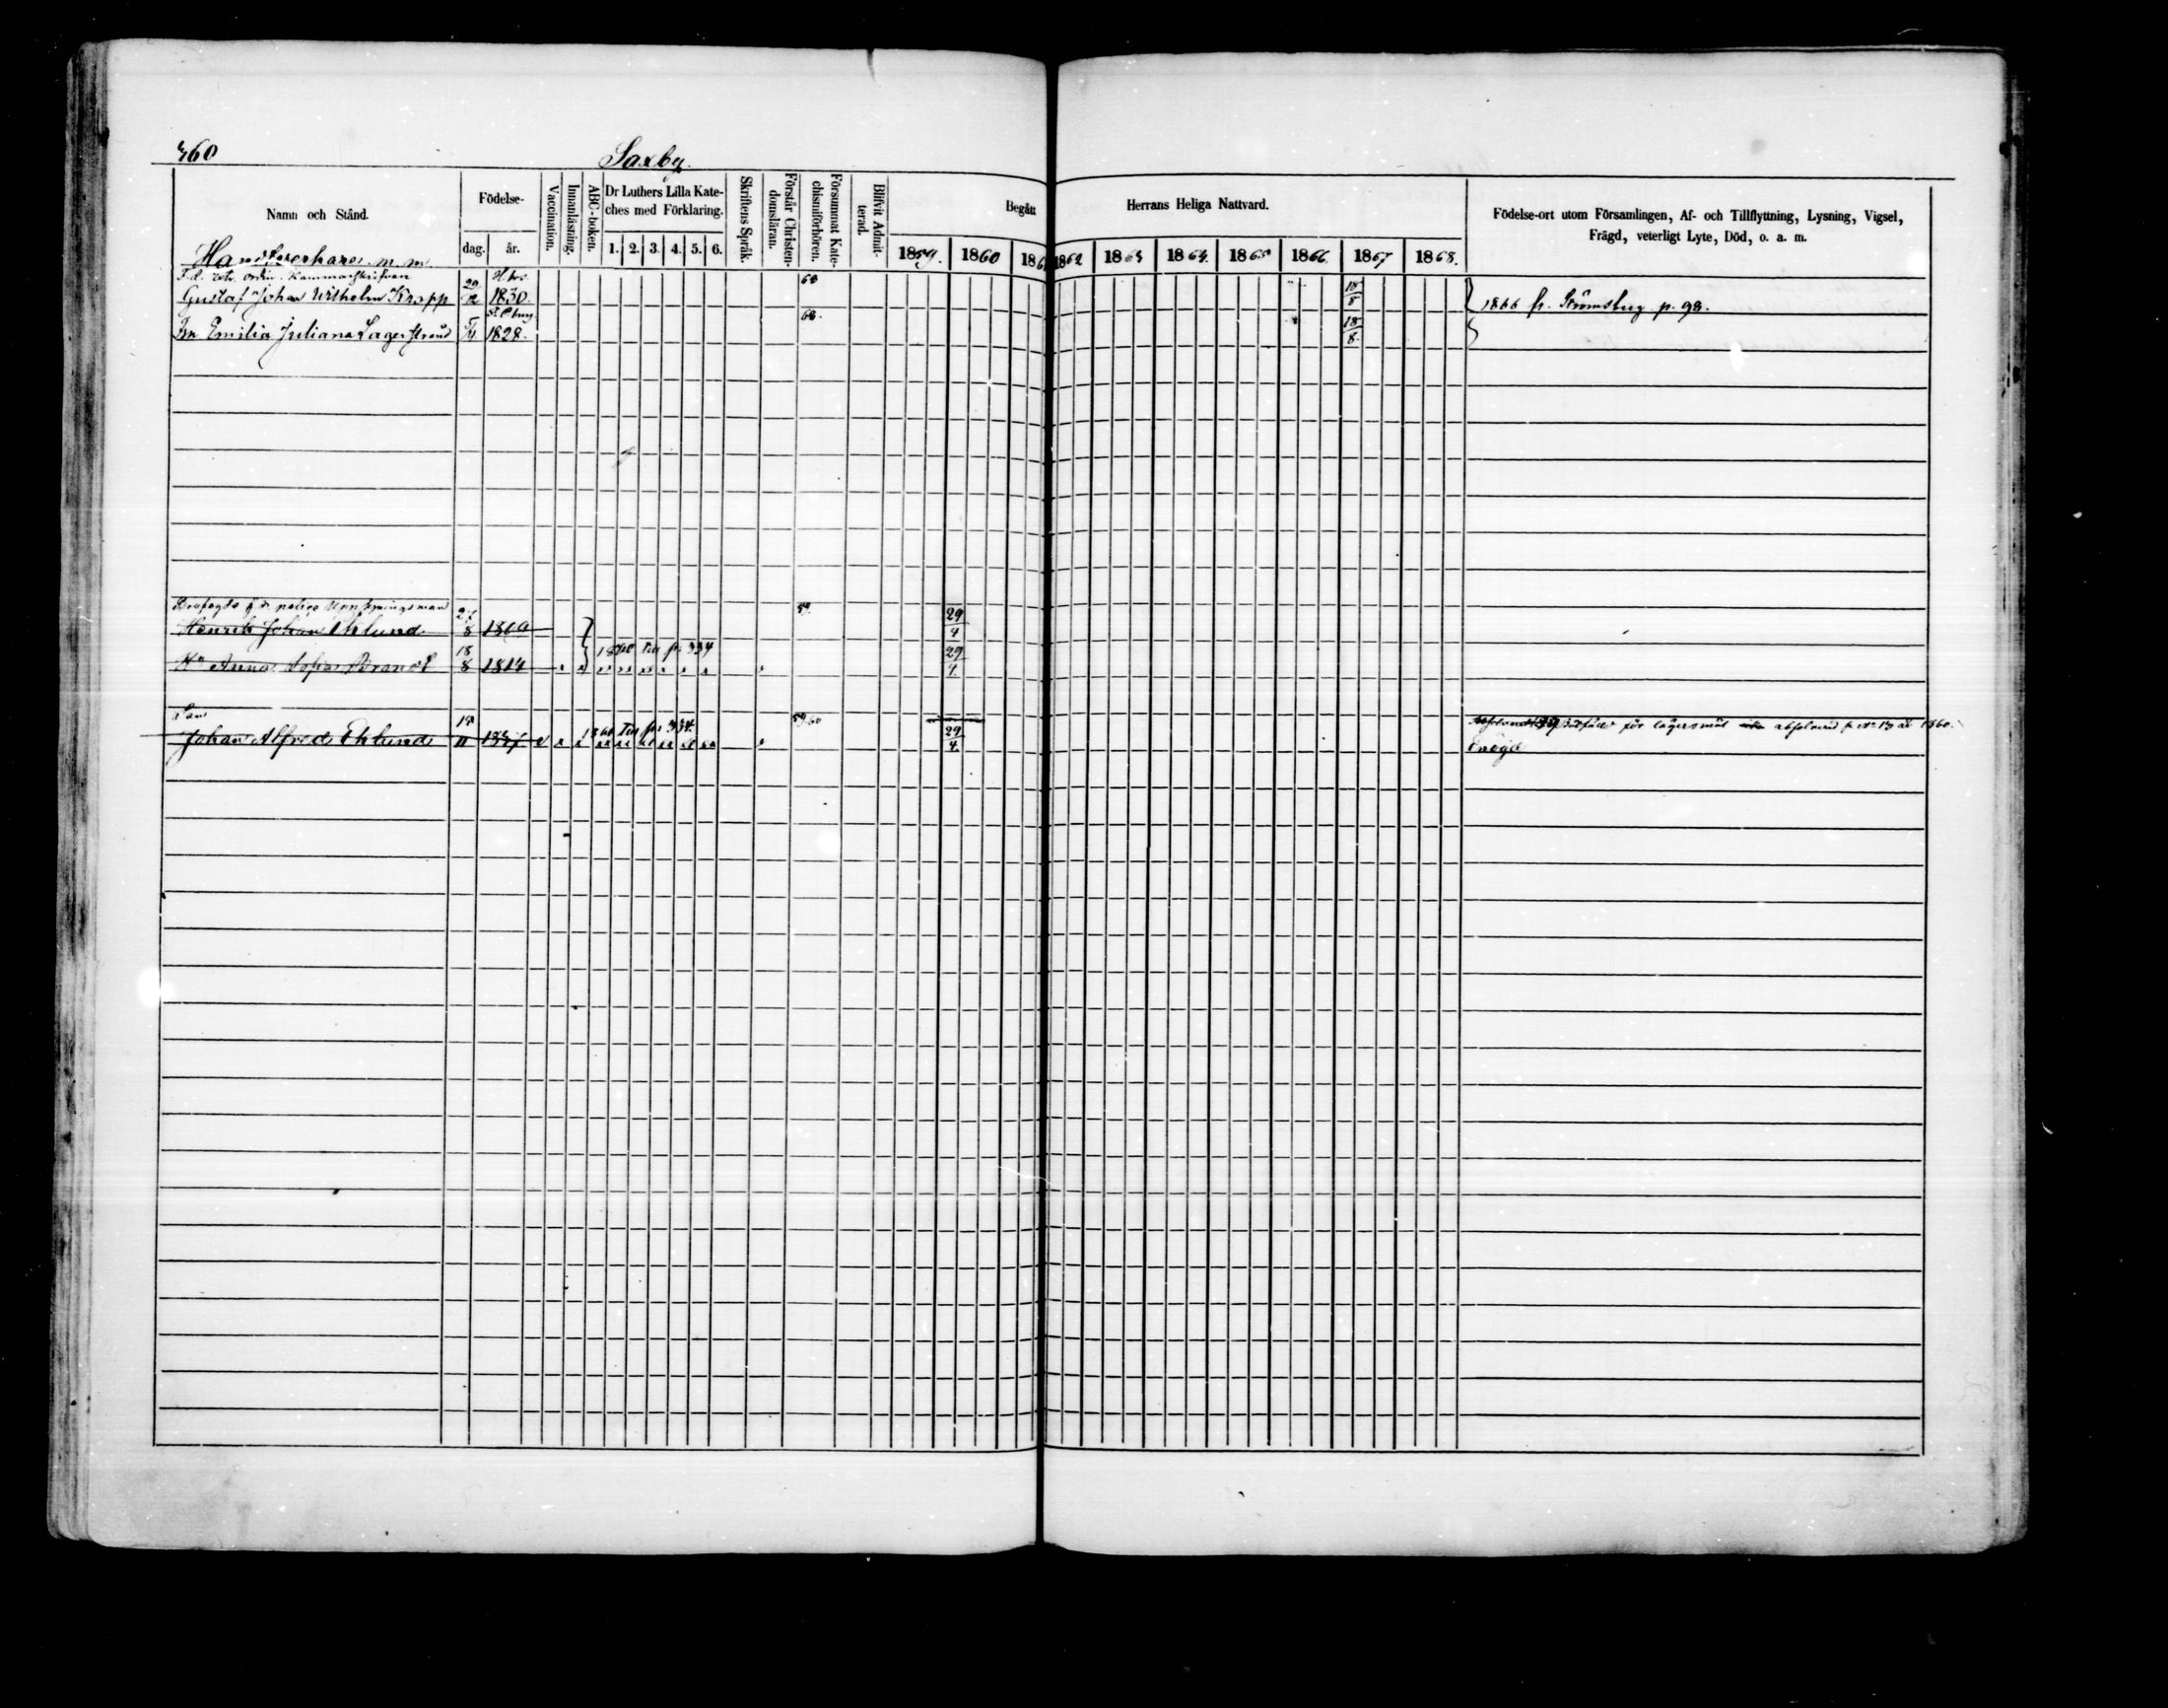 360
Saxby.
Namn och Stånd.
Födelse-
dag.
år.
Vaccination.
Innanläsning.
ABC-boken.
Dr Luthers Lilla Kate-
ches med Förklaring.
1. 2. 3. 4. 5. 6.
Skriftens Språk.
Förstår Christen-
domsläran.
Försummat Kate-
chismiförhören.
Blifvit Admit-
terad.
Begått
Herrans Heliga Nattvard.
1859. 1860 186 1862 1863 1864. 1865 1866. 1867 1868.
Födelse-ort utom Församlingen, Af- och Tillflyttning, Lysning, Vigsel,
Frägd, veterligt Lyte, Död, o. a. m.
Handtverkare m. m.
F. d. Kammarskrifvaren
Gustaf Johan Wilhelm Knapp 29/12 H.fors 1830. 68 18/8 1866 fr. Strömsberg p. 98.
Emilia Juliana Lagerstrand 1828. 68. 18/8
Henrik Johan Eklund 27/8 59. 29/4
Hu Anna Sofia Brandt 18/8 1814 1860 till p. 334 29/4
Son
Johan Alfred Eklund 18/11 1837 1860 till p. 334. 59 60 29/4 för lägersmål absolverad 1860.
Frägd